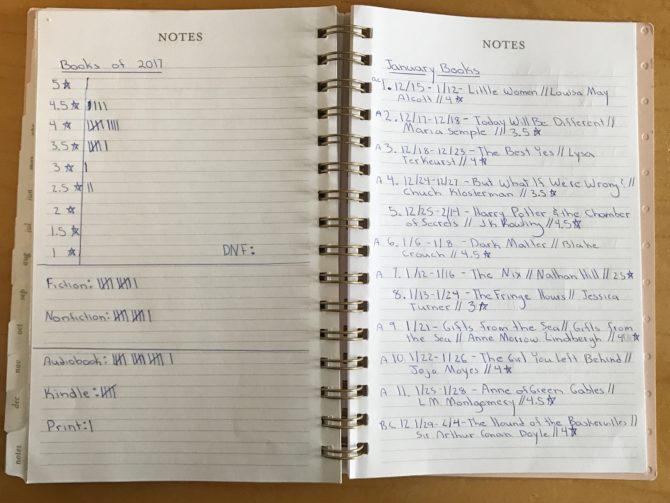 NOTES
Books of 2017
5☆ |
4.5☆ ||||
4☆ 卌 ||||
3.5☆ 卌 |
3☆ |
2.5☆ ||
2☆
1.5☆
1☆ DNF:
Fiction: 卌 卌 |
Nonfiction: 卌 卌 |
Audiobook: 卌 卌 卌 |
Kindle: 卌
Print: |
dec
notes
NOTES
January Books
1. 12/15-1/12- Little Women // Louisa May
Alcott // 4☆
A 2. 12/17-12/18 - Today Will Be Different //
Maria Semple // 3.5☆
A 3. 12/18-12/23 - The Best Yes // Lysa
TerKeurst // 4☆
A 4. 12/24-12/27 - But What If We're Wrong? //
Chuck Klosterman // 3.5☆
5. 12/25-2/14 - Harry Potter & the Chamber
of Secrets // J.K. Rowling // 4.5☆
A 6. 1/6 - 1/8 - Dark Matter // Blake
Crouch // 4.5☆
A 7. 1/12-1/16 - The Nix // Nathan Hill // 2.5☆
8. 1/13-1/24 - The Fringe Hours // Jessica
Turner // 3☆
A 9. 1/21 - Gifts from the Sea // Gifts from
the Sea // Anne Morrow Lindbergh // 4☆
A 10. 1/22-1/26 - The Girl You Left Behind //
Jojo Moyes // 4☆
A 11. 1/25-1/28 - Anne of Green Gables //
L.M. Montgomery // 4.5☆
12. 1/29-2/4 - The Hound of the Baskervilles //
Sir Arthur Conan Doyle // 4☆